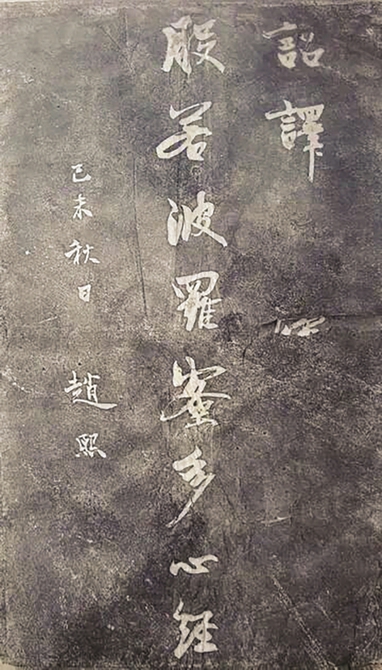 詔譯
般若波羅蜜多心经
己未秋日 趙熙